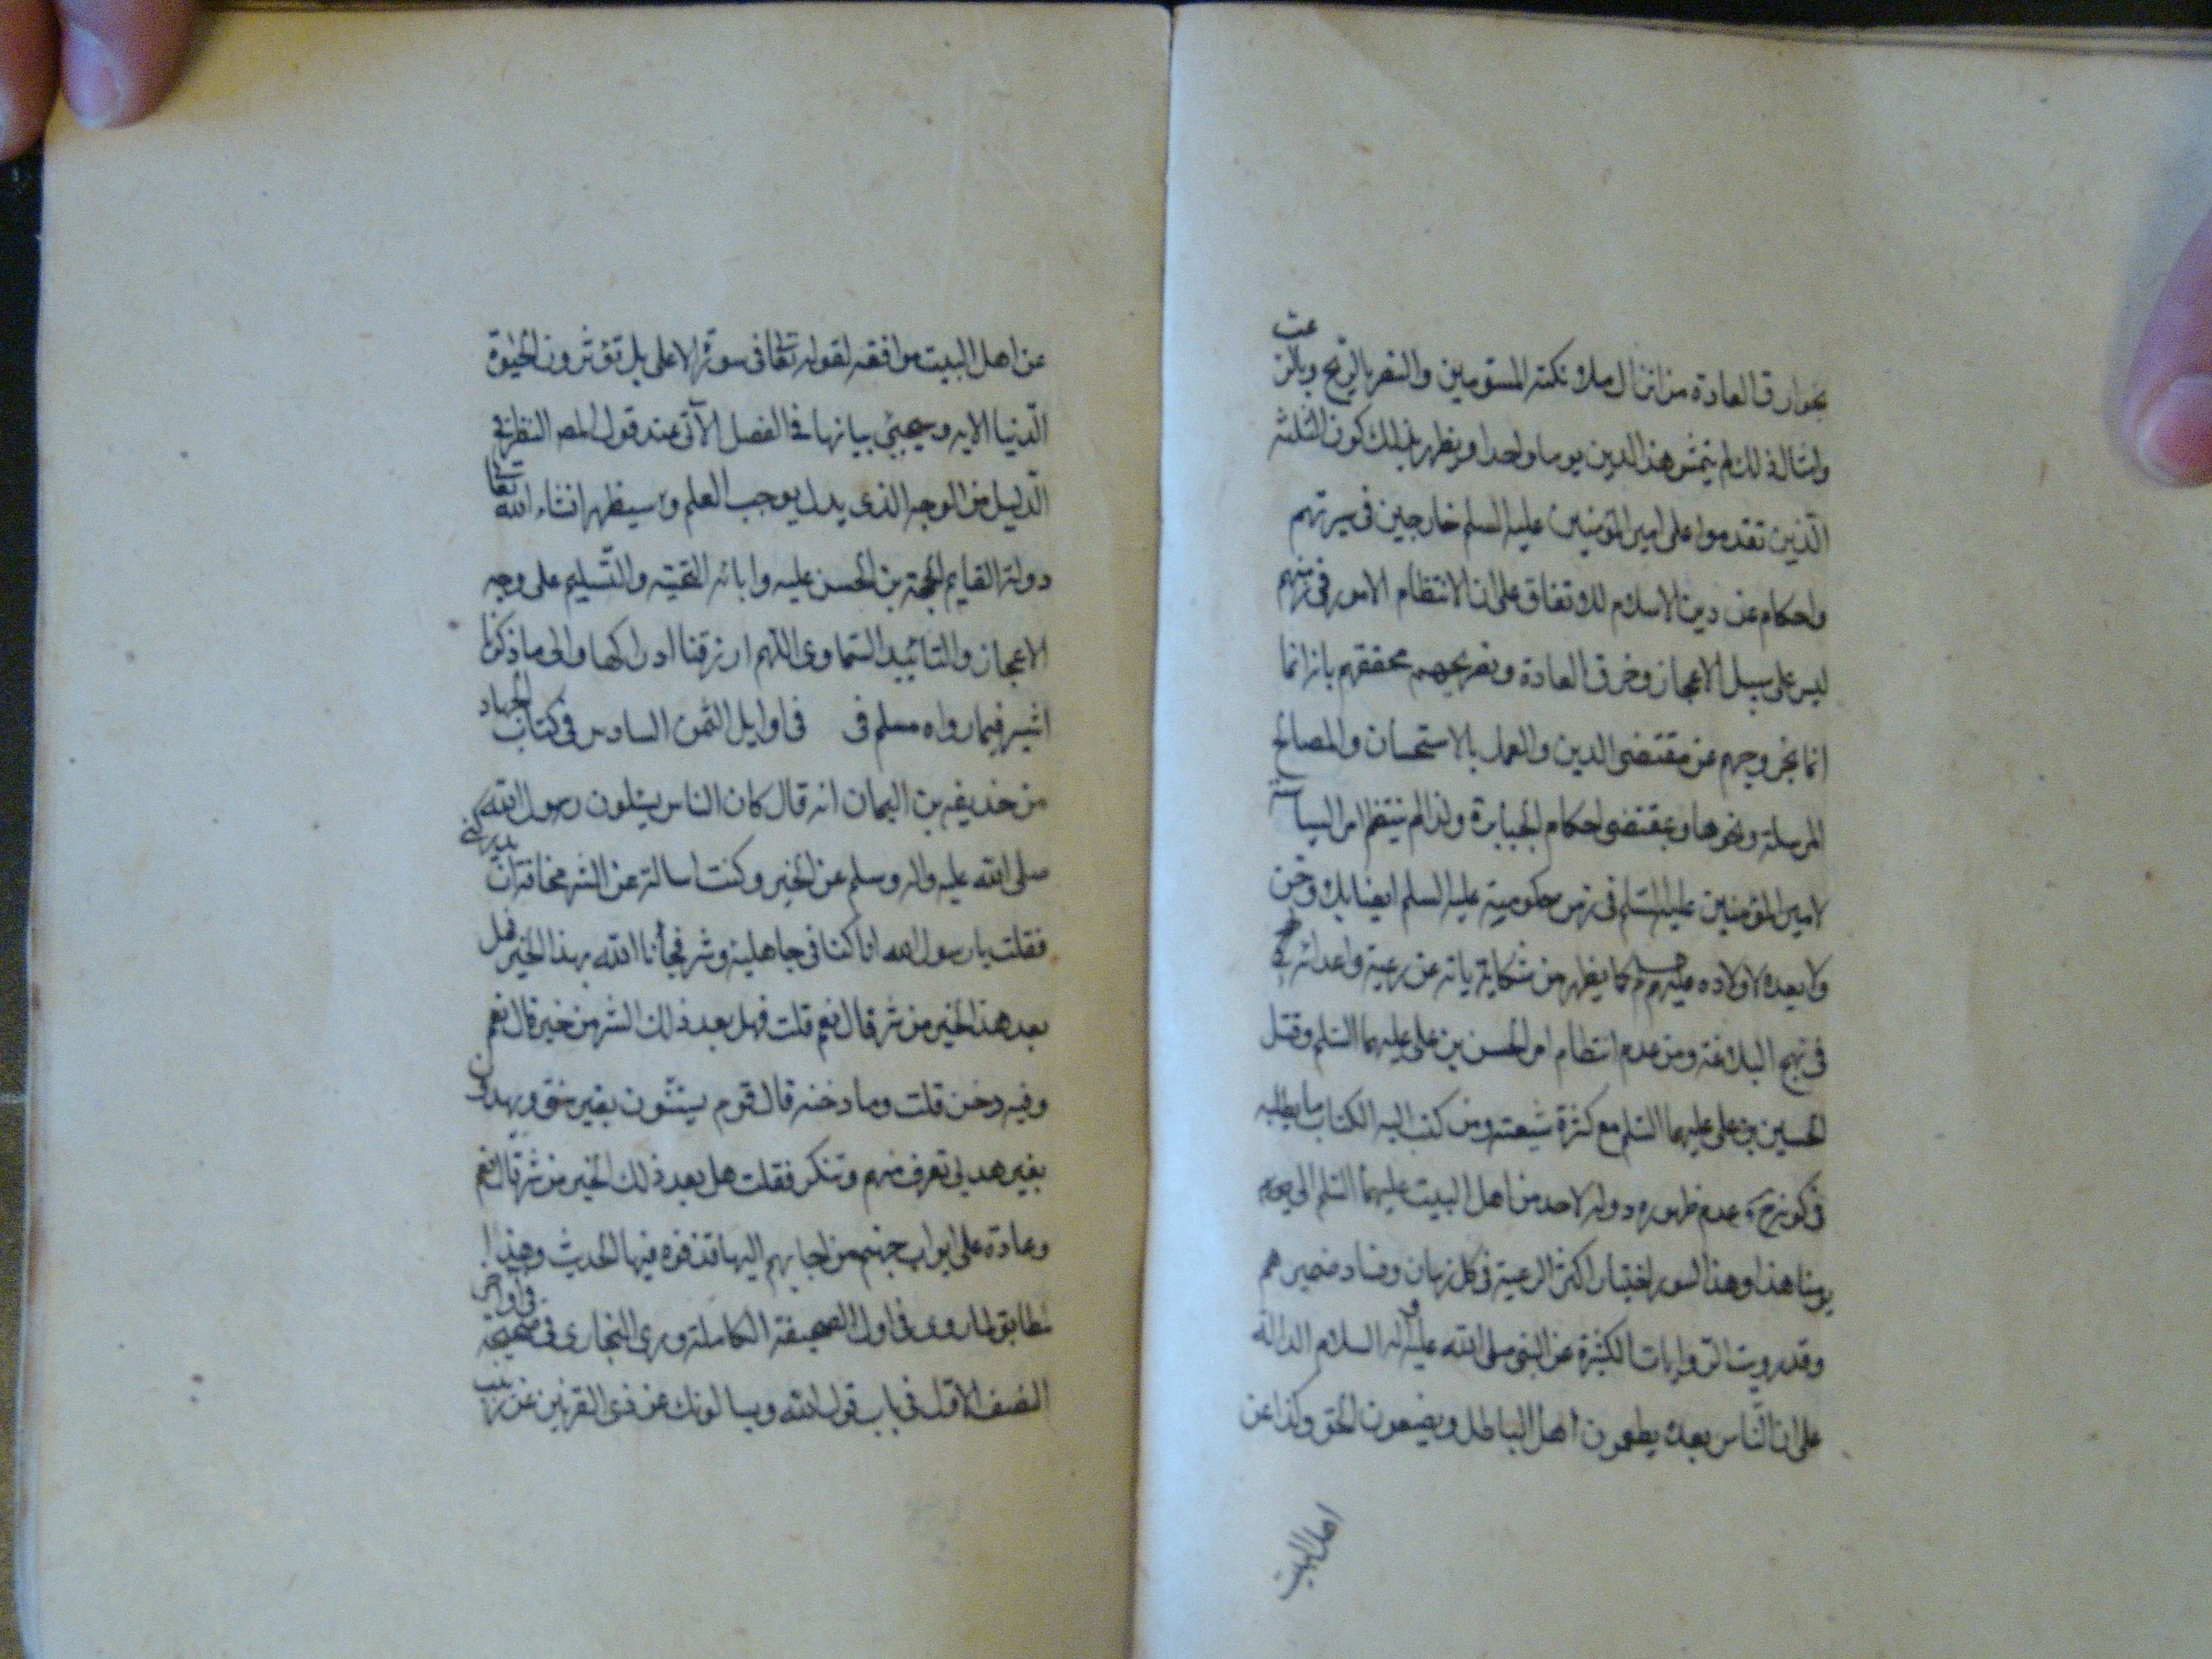 بخوارق العادة من انزال ملائكته المسومين والنصر بالريح وبالرعب
وامثال ذلك لم يتمش هذا الدين يوما واحدا ويظهر بذلك كون الثلثة
الذين تقدموا على امير المؤمنين عليه السلم خارجين في سيرتهم
واحكام عن دين الاسلام للاتفاق على ان الانتظام الامور في زمنهم
ليس على سبيل الاعجاز وخرق العادة وتصريحهم محققهم بانه انما
انما بخروجهم عن مقتضى الدين والعمل بالاستحسان والمصالح
المرسلة ونحوها وبمقتضى احكام الجبابرة ولذا لم ينتظم امر السياسة
لامير المؤمنين عليه السلم في زمن حكومته عليه السلم ايضا بل وحتى
ولا بعده لاولاده عليهم كما يظهر من شكاياته عن رعيته واعدائه
في نهج البلاغة ومن عدم انتظام امر الحسن بن علي عليهما السلم وقتل
الحسين بن علي عليهما السلم مع كثرة شيعته ومن كتب اليه الكتاب ما يطلبه
في كونه عدم ظهور دولة لاحد من اهل البيت عليهما السلم الى
يومنا هذا وهذا لسوء اختيار اكثر الرعية في كل زمان وفساد ضميرهم
وقد رويت الروايات الكثيرة عن النبي صلى الله عليه واله السلام الدالة
على ان الناس بعده يطيعون اهل الباطل ويضيعون الحق وكذا عن
اهل البيت
عن اهل البيت موافقه لقوله تعالى في سورة الاعلى بل تؤثرون الحيوة
الدنيا الايه وسيجيئ بيانها في الفصل الآتي عند قول المص النظر في
الدليل من الوجه الذي يدل يوجب العلم وسيظهر انشاء الله تعالى
دولة القايم الحجة بن الحسن عليه وابائه التحية والتسليم على وجه
الاعجاز والتائيد السماوي اللهم ارزقنا ادراكها والى ما ذكرنا
اشير فيما رواه مسلم في في اوايل الثمن السادس في كتاب الجهاد
من حذيفه بن اليمان انه قال كان الناس يسئلون رسول الله
صلى الله عليه واله وسلم عن الخير وكنت اسالته عن الشر مخافة ان يدركني
فقلت يا رسول الله انا كنا في جاهلية وشر فجأنا الله بهذا الخير فهل
بعد هذا الخير من شر قال نعم قلت فهل بعد ذلك الشر من خير قال نعم
وفيه دخن قلت وما دخنه قال قوم يستنون بغير سنتي ويهدون
بغير هديي تعرف منهم وتنكر فقلت هل بعد ذلك الخير من شر قال نعم
وعادة على ابواب جهنم من اجابهم اليها قذفوه فيها الحديث وهذا
مطابق لما روى في اول الصحيفة الكاملة وروى البخاري في صحيحه في اواخر
النصف الاول في باب قول الله ويسالونك عن ذي القرنين عن زينب